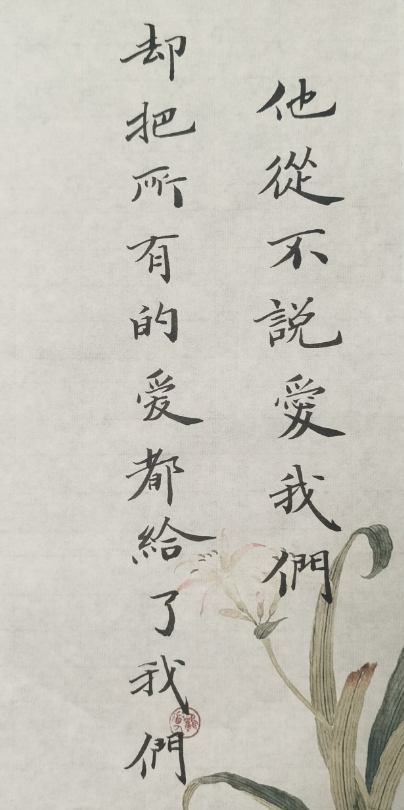 他從不説愛我們
却把所有的爱都給了我們